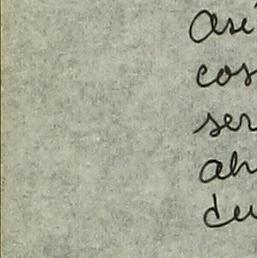 así
cos
ser
ah
du